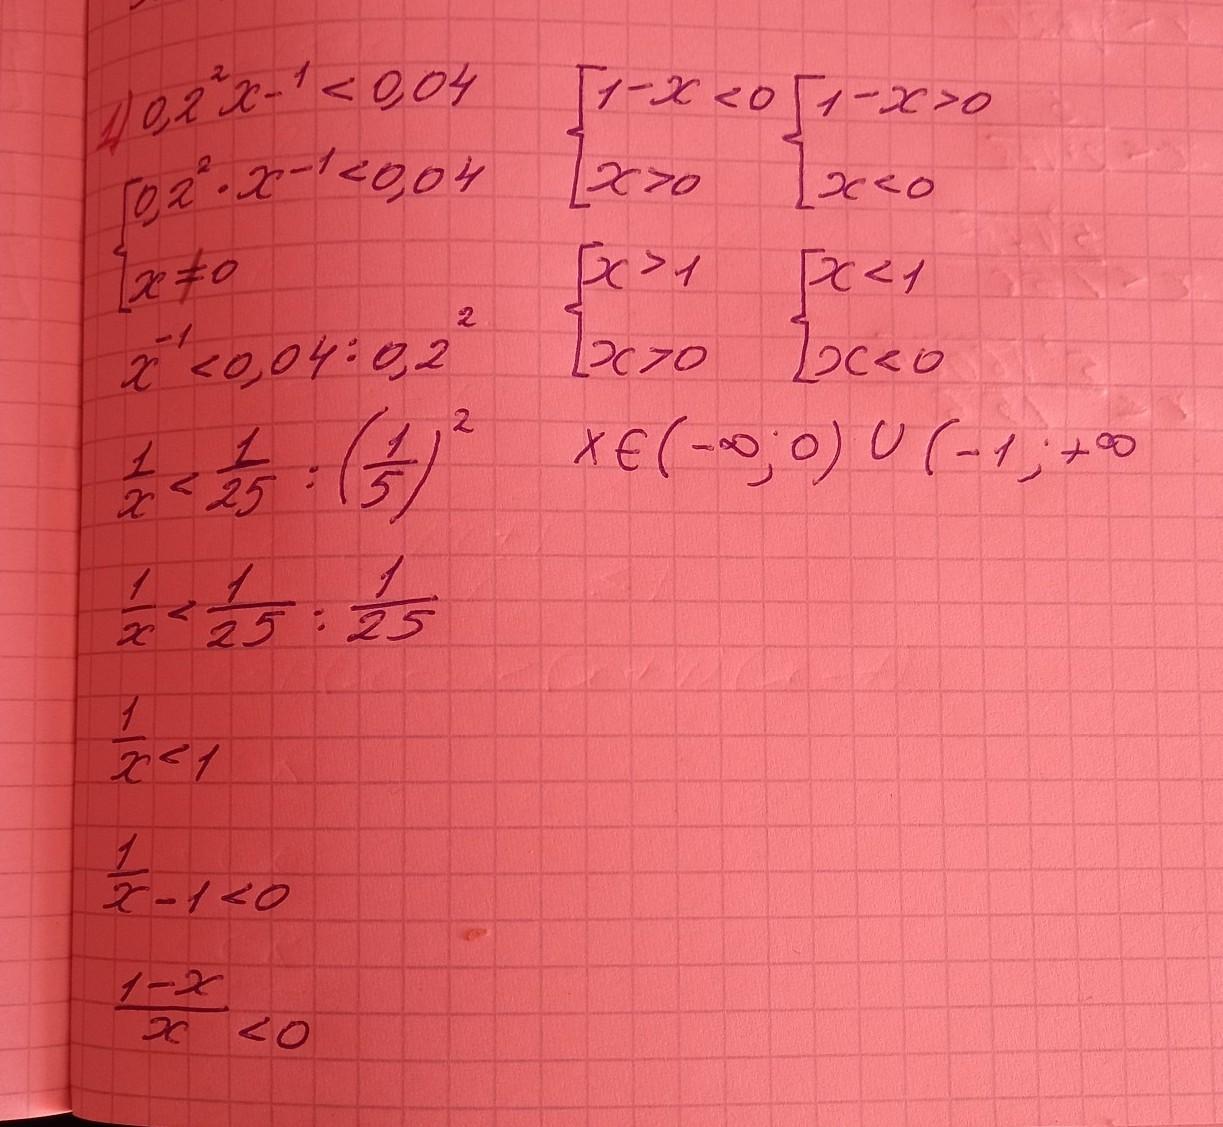 1) 0,2²x-¹ < 0,04
{0,2² · x-¹ < 0,04
x ≠ 0
x⁻¹ < 0,04 : 0,2²
1/x < 1/25 : (1/5)²
1/x < 1/25 : 1/25
1/x < 1
1/x - 1 < 0
(1-x)/x < 0
{1-x < 0 {1-x > 0
x > 0 x < 0
{x > 1 {x < 1
x > 0 x < 0
x ∈ (-∞; 0) ∪ (-1; +∞